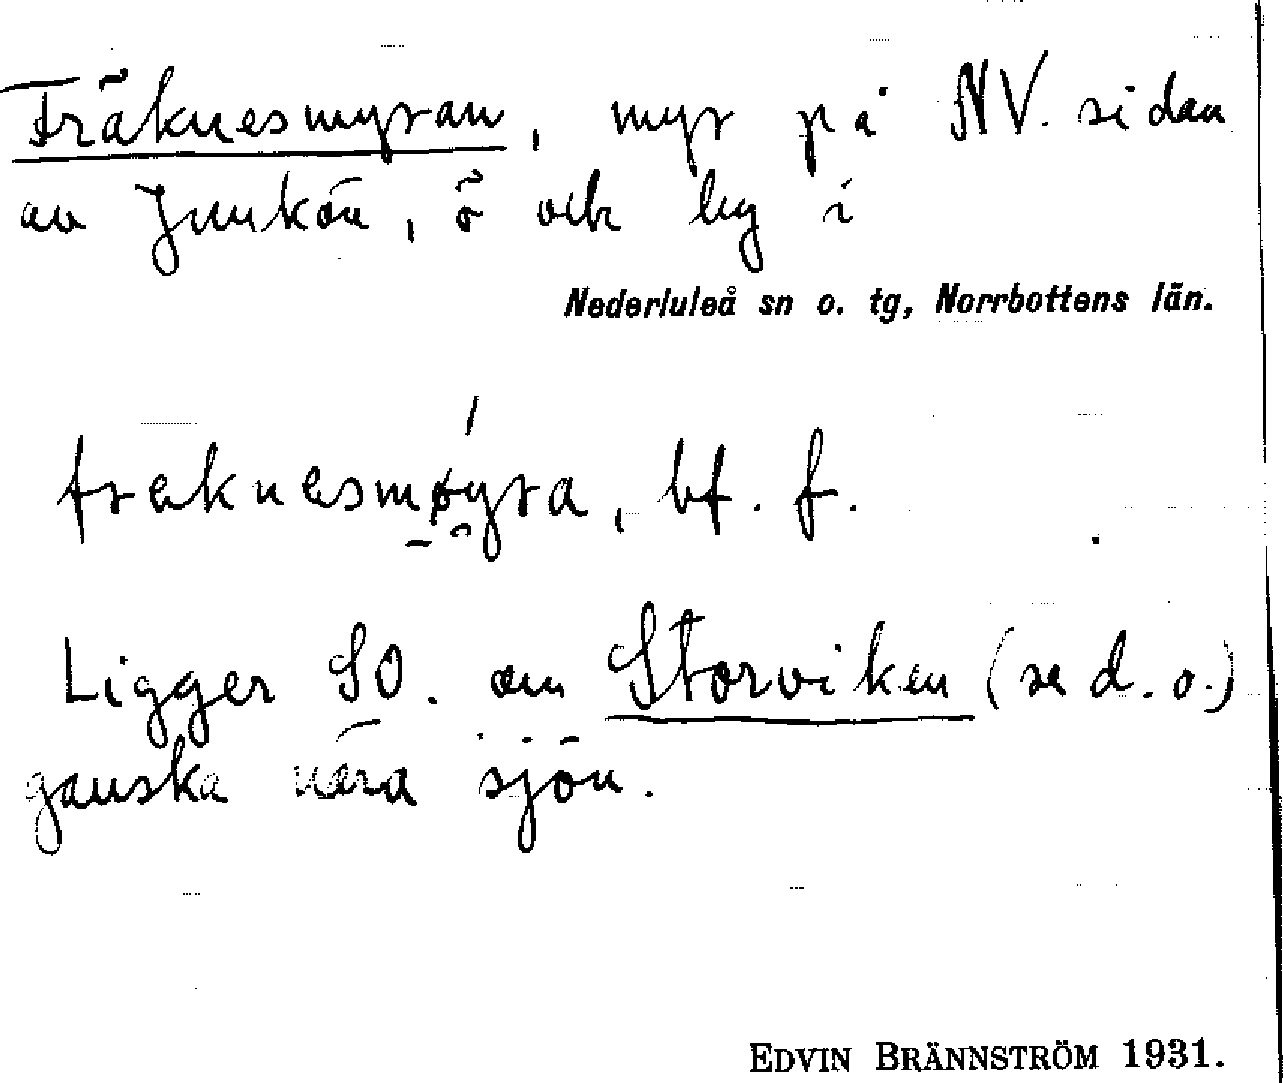 Fräknesmyran, myr på NV. sidan
av Junkön, ö och by i
Nederluleå sn o. tg, Norrbottens län.
freknesmøyra, bf. f.
Ligger SO. om Storviken (se d. o.)
ganska nära sjön.
EDVIN BRÄNNSTRÖM 1931.